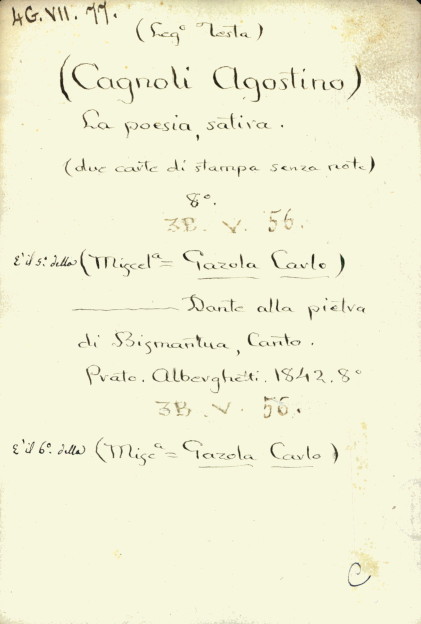 4G.VII.77.
(Legº Testa)
(Cagnoli Agostino)
La poesia, satira.
(due carte di stampa senza note)
8º.
3B. V. 56.
è il 5º. della (Miscelª = Gazola Carlo)
———— Dante alla pietra
di Bismantua, Canto.
Prato. Alberghetti. 1842. 8º
3B. V. 56.
è il 6º. della (Miscª = Gazola Carlo)
C